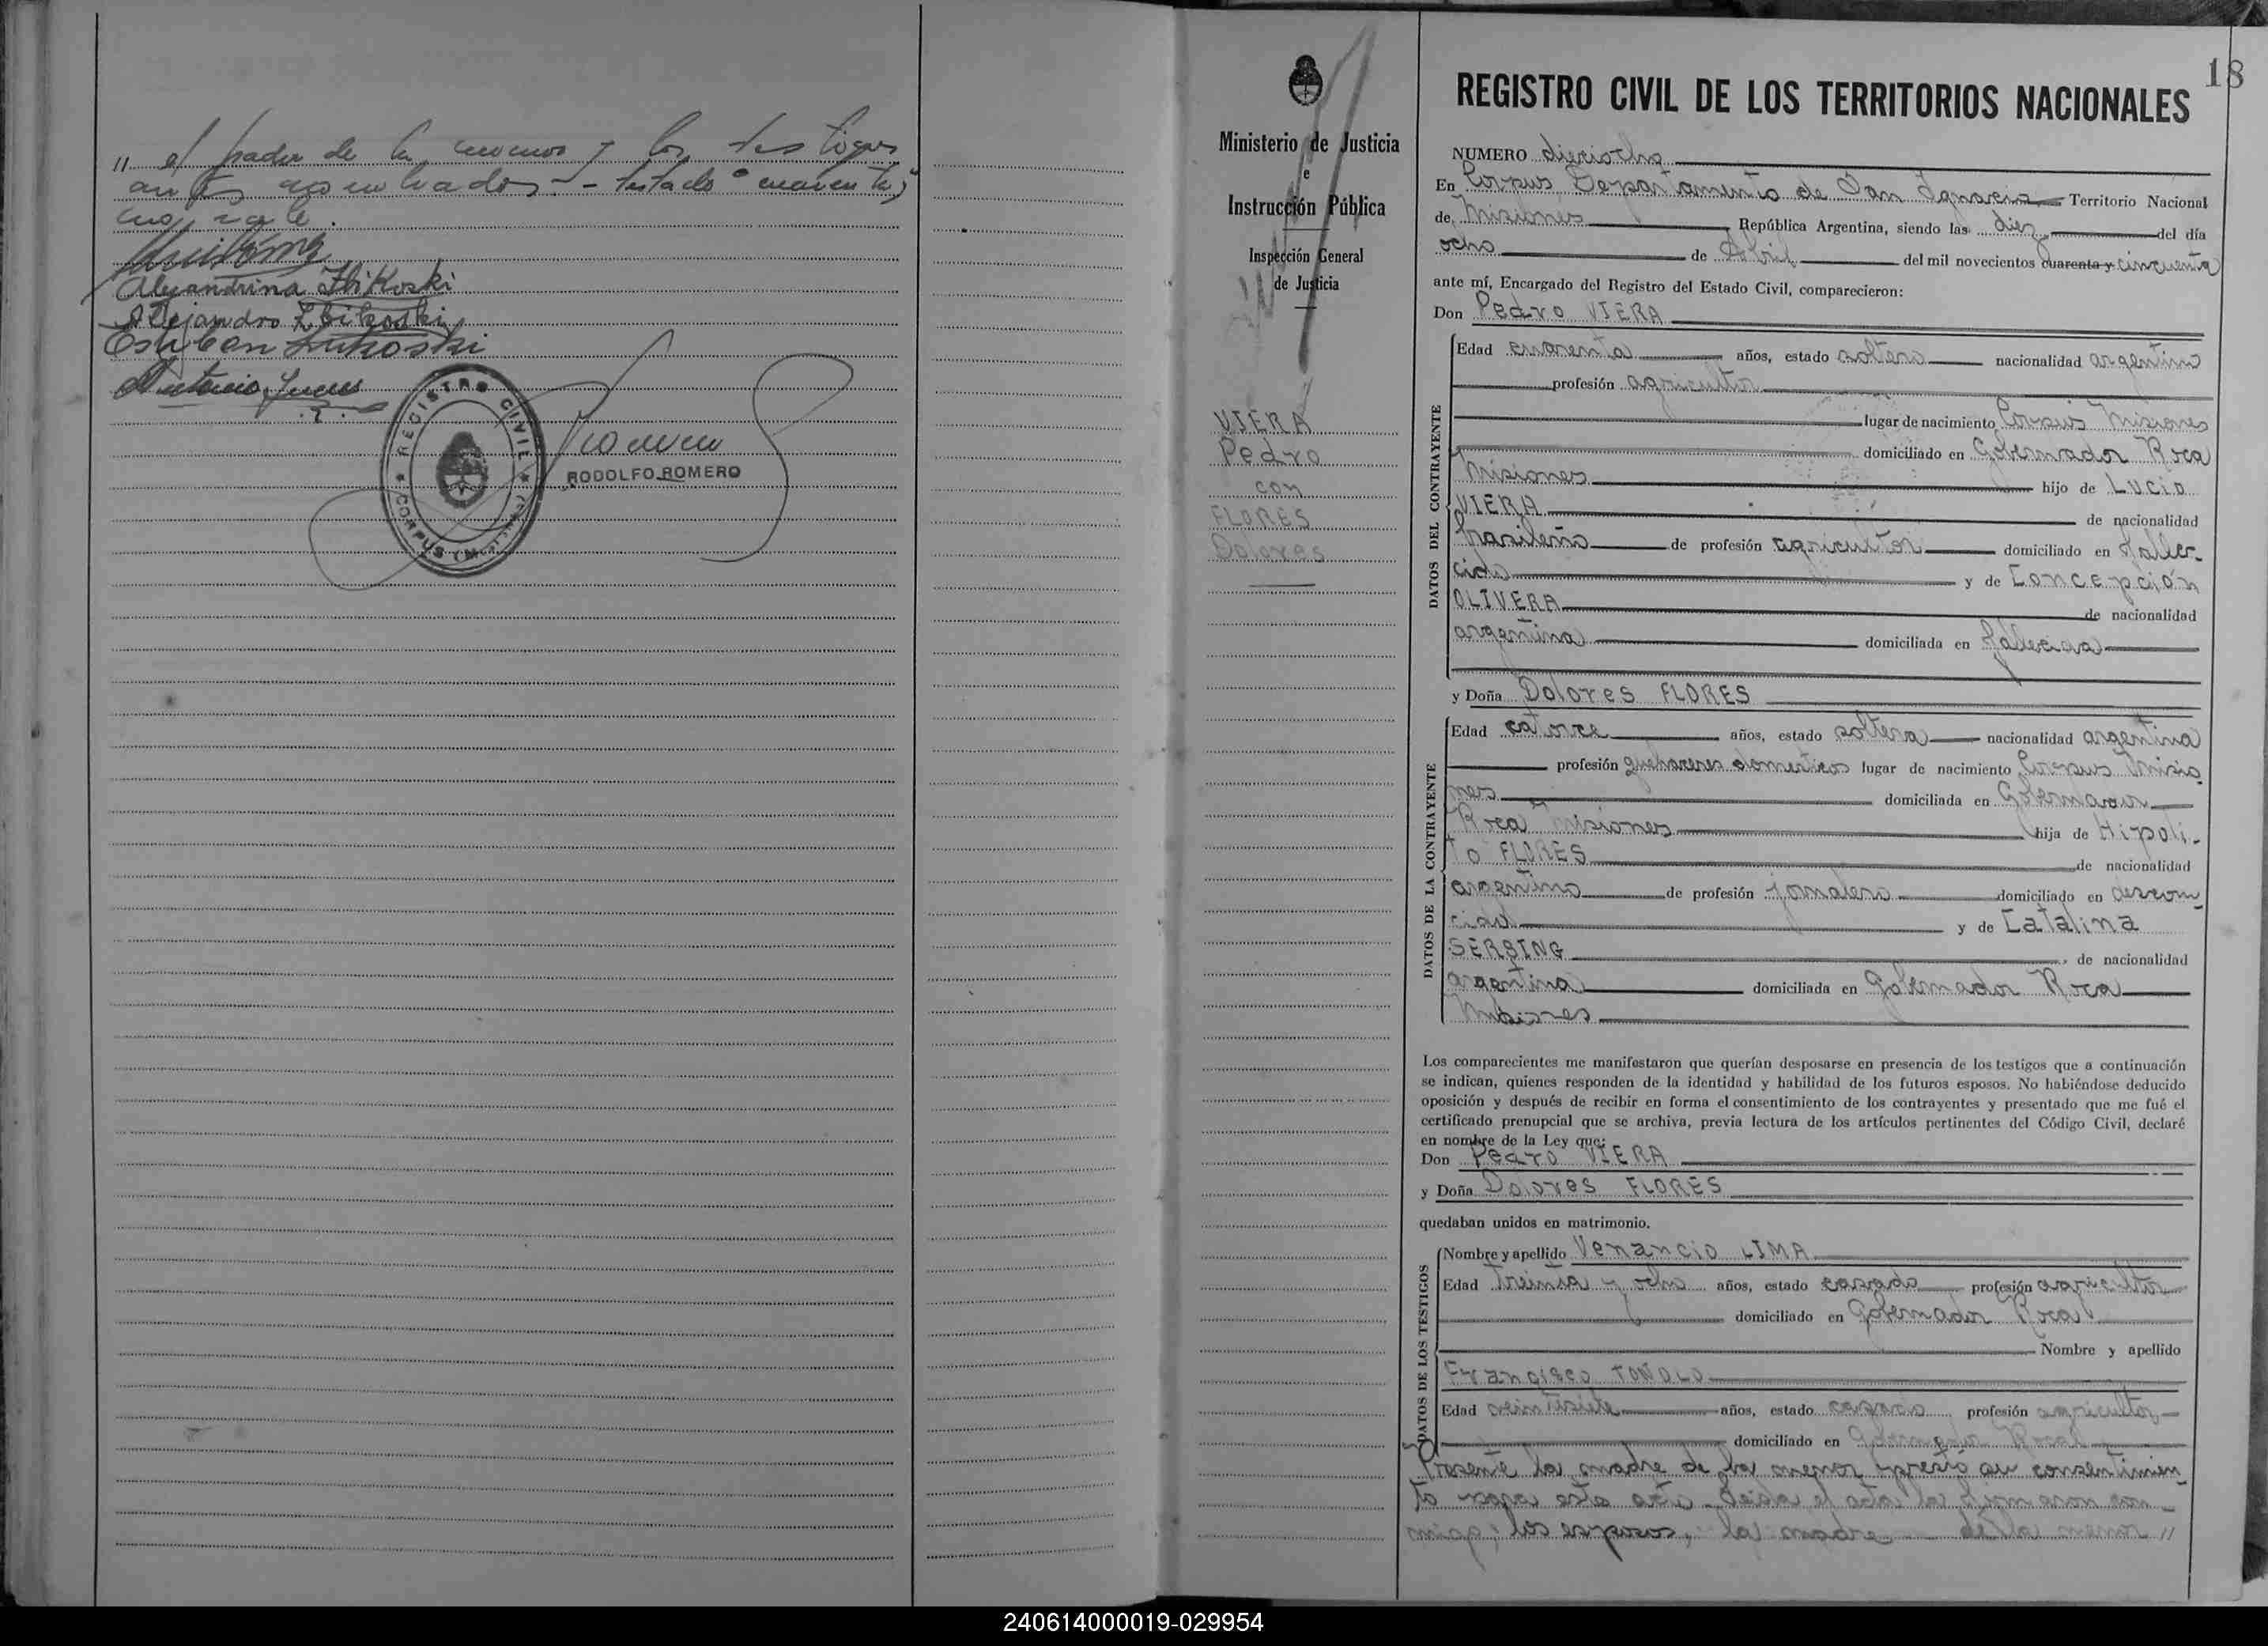 " el padre de la menor y los testigos
antes nombrados - testado "cuarenta y"
no vale.
Alejandrina Zbikoski
Alejandro Zbikoski
Esteban Zukoski
Antonio
REGISTRO CIVIL
CORPUS (Misiones)
Romero
RODOLFO ROMERO
Ministerio de Justicia
e
Instrucción Pública
Inspección General
de Justicia
VIERA
Pedro
con
FLORES
Dolores
18
REGISTRO CIVIL DE LOS TERRITORIOS NACIONALES
NUMERO dieciocho
En Corpus Departamento de San Ignacio Territorio Nacional
de Misiones República Argentina, siendo las diez del día
ocho de Abril del mil novecientos cuarenta y cincuenta
ante mí, Encargado del Registro del Estado Civil, comparecieron:
Don Pedro VIERA
DATOS DEL CONTRAYENTE
Edad cuarenta años, estado soltero nacionalidad argentino
profesión agricultor
lugar de nacimiento Corpus Misiones
domiciliado en Gobernador Roca
Misiones hijo de Lucio
VIERA de nacionalidad
brasileño de profesión agricultor domiciliado en falle-
cido y de Concepción
OLIVERA de nacionalidad
argentina domiciliada en fallecida
y Doña Dolores FLORES
DATOS DE LA CONTRAYENTE
Edad catorce años, estado soltera nacionalidad argentina
profesión quehaceres domesticos lugar de nacimiento Corpus Misio-
nes domiciliada en Gobernador
Roca Misiones hija de Hipoli-
to FLORES de nacionalidad
argentino de profesión jornalero domiciliado en descono-
cido y de Catalina
SERBING de nacionalidad
argentina domiciliada en Gobernador Roca
Misiones
Los comparecientes me manifestaron que querían desposarse en presencia de los testigos que a continuación
se indican, quienes responden de la identidad y habilidad de los futuros esposos. No habiéndose deducido
oposición y después de recibir en forma el consentimiento de los contrayentes y presentado que me fué el
certificado prenupcial que se archiva, previa lectura de los artículos pertinentes del Código Civil, declaré
en nombre de la Ley que:
Don Pedro VIERA
y Doña Dolores FLORES
quedaban unidos en matrimonio.
DATOS DE LOS TESTIGOS
Nombre y apellido Venancio LIMA
Edad treinta y ocho años, estado casado profesión agricultor
domiciliado en Gobernador Roca
Nombre y apellido
Francisco TOÑOLO
Edad veintisiete años, estado casado profesión agricultor
domiciliado en Gobernador Roca
Presente la madre de la menor presto su consentimien-
to para este acto. Leida el acta la firmaron con-
migo; los esposos, la madre de la menor "
240614000019-029954